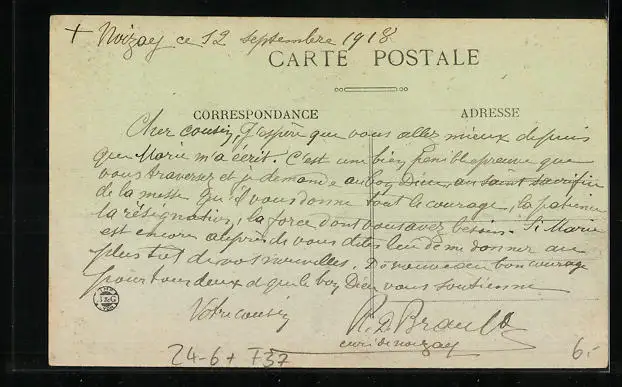 + Noizay ce 12 septembre 1918
CARTE POSTALE
CORRESPONDANCE
ADRESSE
Cher cousin, J'espère que vous allez mieux depuis
que Marie m'a écrit. C'est une bien pénible épreuve que
vous traversez et je demande au bon Dieu, au saint sacrifice
de la messe qu'il vous donne tout le courage, la patience
la résignation, la force dont vous avez besoin. Si Marie
est encore auprès de vous dites lui de me donner au
plus tôt de vos nouvelles. De nouveau bon courage
pour tous deux et que le bon Dieu vous soutienne
Votre cousin
Brault
curé de Noizay
24-6+ T37
6.-